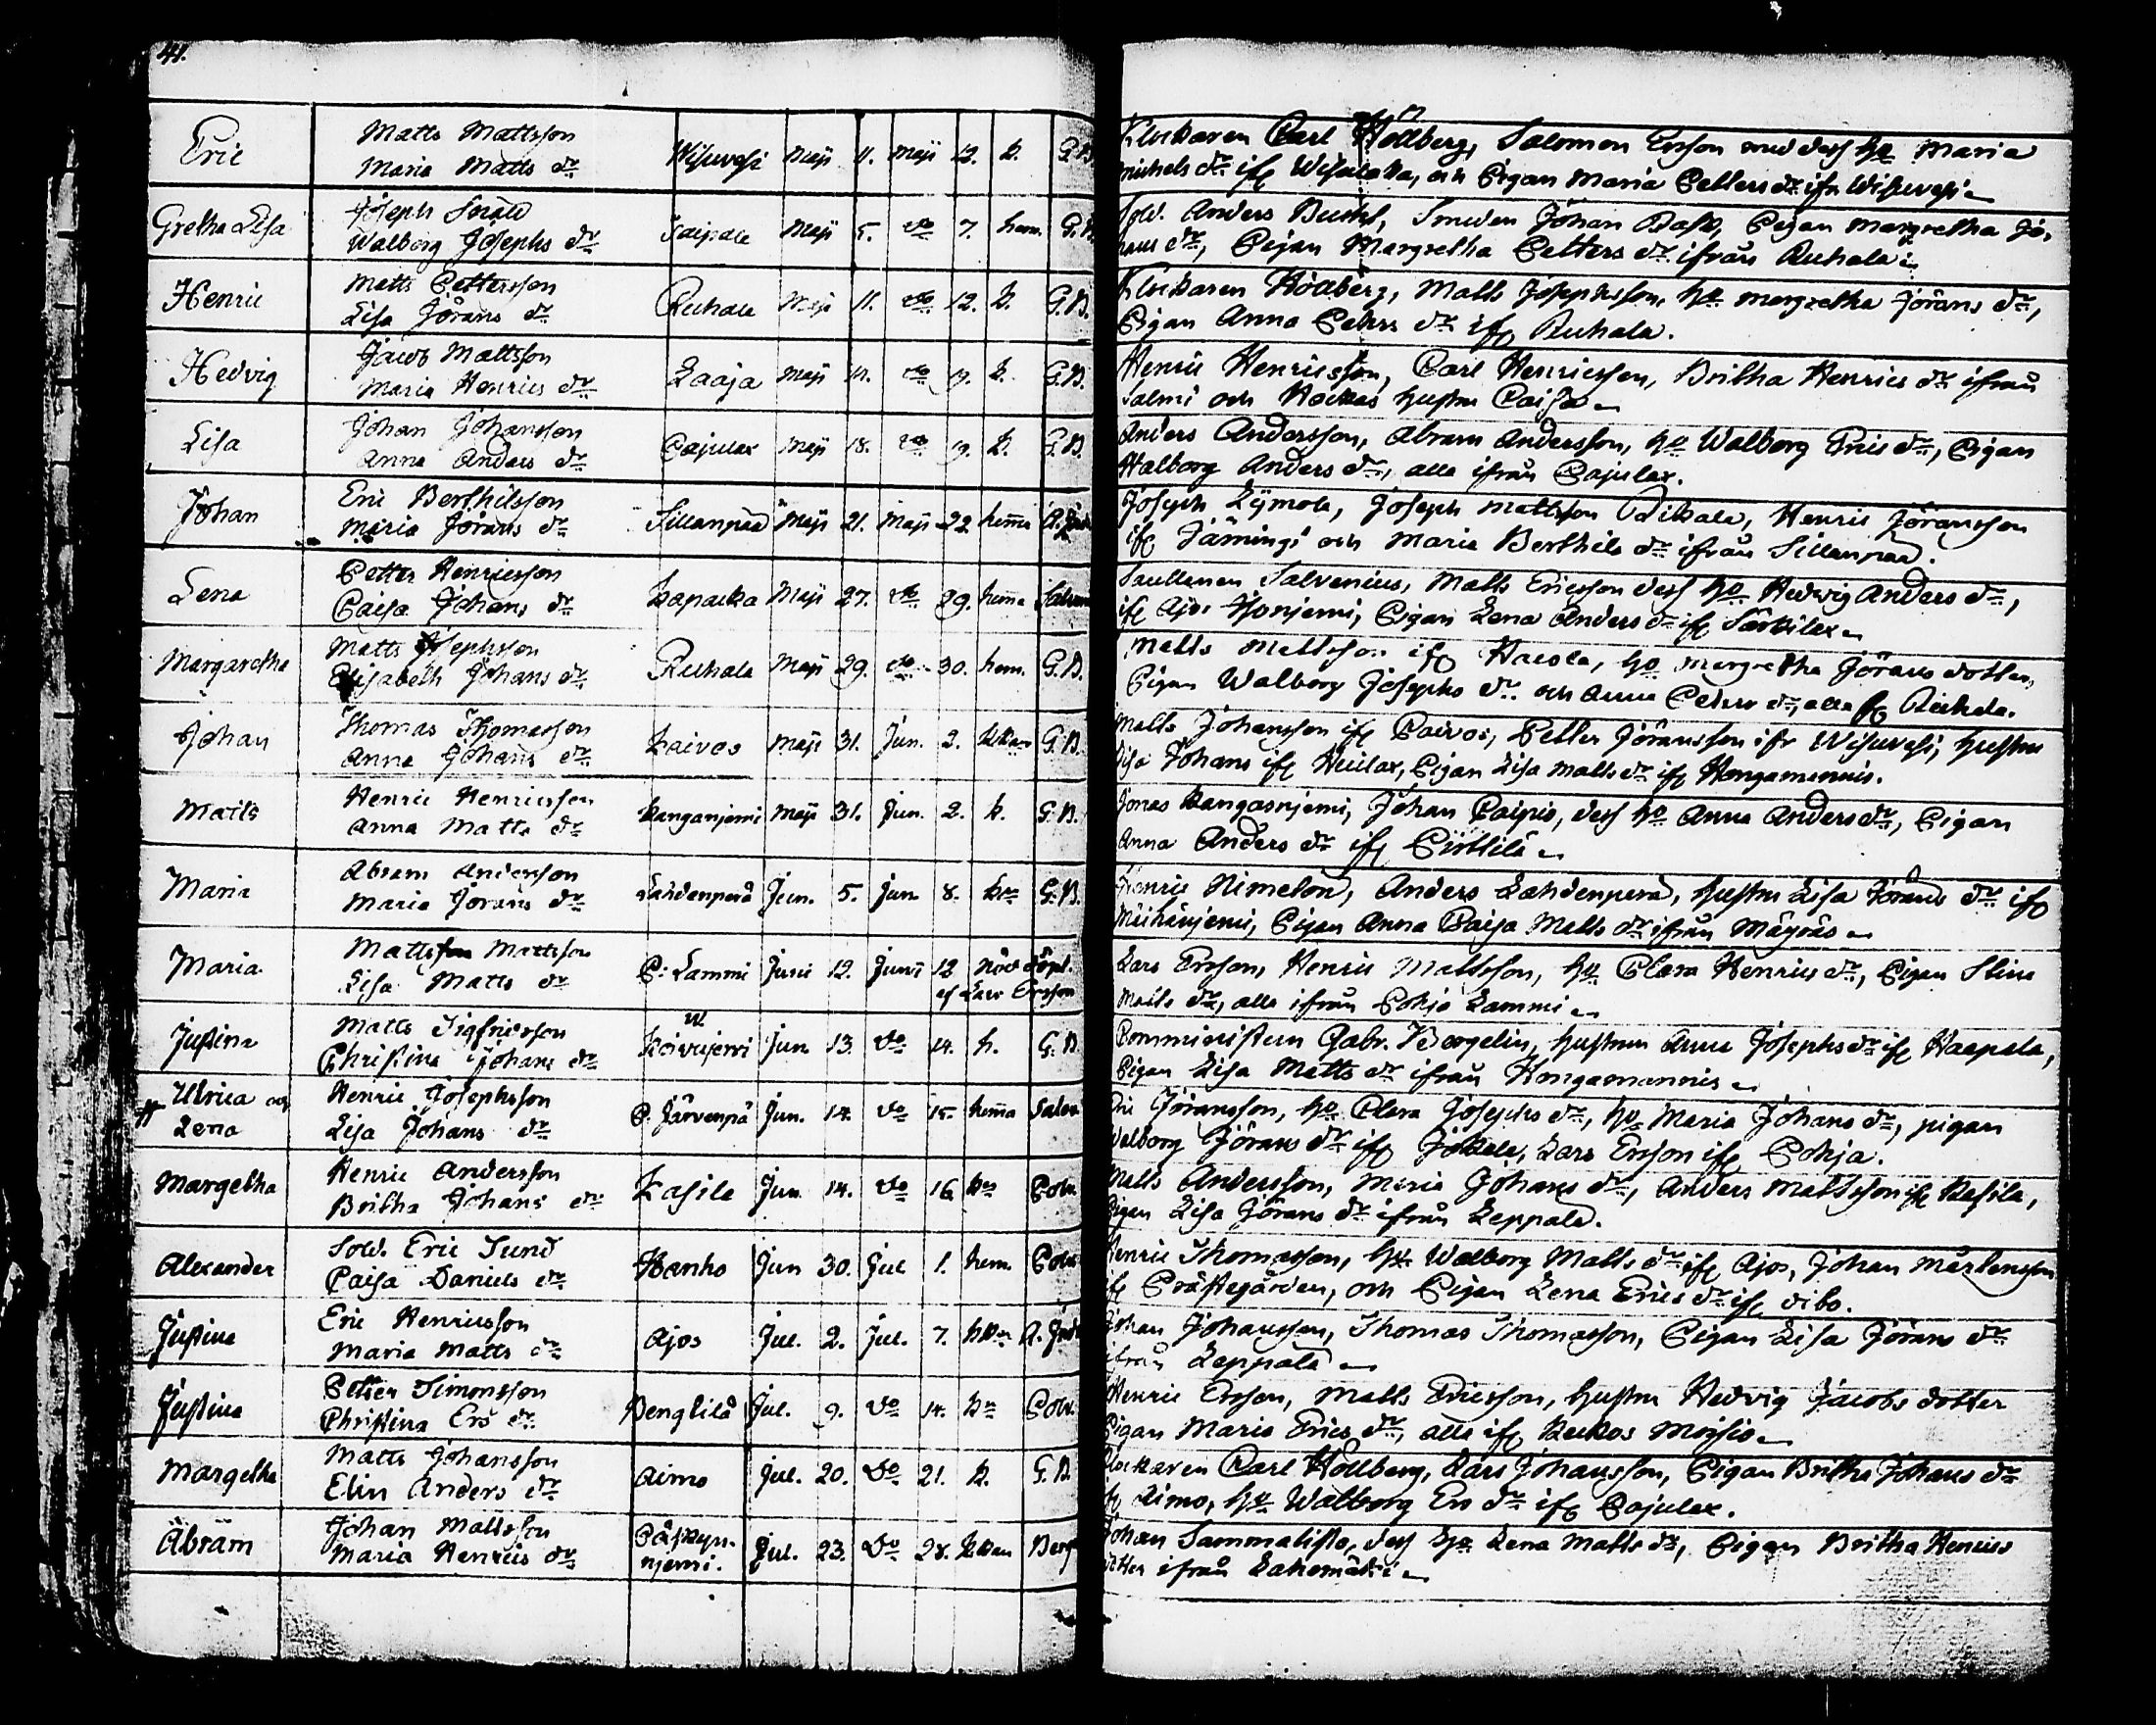 41.
Eric
Matts Mattsson
Maria Matts dr
Wisuvesi Maji 11. Maji 13. k. G.B.
Klockaren Carl Höllberg, Salomon Ersson med dess ho Maria
Michels dr ifr och Pigan Maria Petters dr ifr Wisuvesi
Gretha Lisa
Joseph
Walborg Josephs dr
Saipale Maji 5. do 7. hem. G.B.
Sold. Anders Smeden Johan Bask, Pigan Margretha Jö-
rans dr, Pigan Margretha Petters dr ifrån Ruhala
Henric
Matts Pettersson
Lisa Jörans dr
Ruhala Maji 11. do 12. k. G.B.
Klockaren Höllberg, Matts Josephsson, ho Margretha Jörans dr,
Pigan Anna Peters dr ifr Ruhala.
Hedvig
Jacob Mattsson
Maria Henrics dr
Laaja Maji do 19. k. G.B.
Henric Henricsson, Carl Henricsson, Britha Henrics dr ifrån
Salmi och hustru Caisa
Lisa
Johan Johansson
Anna Anders dr
Pajulax Maji 18. do 19. k. G.B.
Anders Andersson, Abram Andersson, ho Walborg Erics dr, Pigan
Walborg Anders dr, alla ifrån Pajulax.
Johan
Eric Berthilsson
Maria Jörans dr
Sillanpää Maji 21. Maji 22. hemma
Joseph Joseph Mattsson Henric Jöransson
ifr Jämingi och Maria Berthils dr ifrån Sillanpää.
Lena
Petter Henricsson
Caisa Johans dr
Maji 27. do 29. hemma
Salvenius, Matts Ericsson dess ho Hedvig Anders dr,
ifr Ajos Pigan Lena Anders dr ifr Särkilax
Margaretha
Matts Josephsson
Elisabeth Johans dr
Ruhala Maji 29. do 30. hem. G.B.
Matts Mattsson ifr ho Margretha Jörans dotter,
Pigan Walborg Josephs dr och Anna Peters dr, alla fr Ruhala.
Johan
Thomas Thomasson
Anna Johans dr
Kaivos Maji 31. Jun. 2. G.B.
Matts Johansson ifr Petter Jöransson ifr Wisuvesi, hustru
Lisa Johans ifr Pigan Lisa Matts dr ifr Hongamennis.
Matts
Henric Henricsson
Anna Matts dr
Kanganjemi Maji 31. Jun. 2. k. G.B.
Jonas Kangasnjemi, Johan dess ho Anna Anders dr, Pigan
Anna Anders dr ifr Pirttilä
Maria
Abram Anderson
Maria Jörans dr
Lahdenperä Jun. 5. Jun. 8. G.B.
Henric Anders Lahdenperä, hustru Lisa Jörans dr ifr
Pigan Anna Caisa Matts dr ifrån Mäyräs
Maria
Matts Mattsson
Lisa Matts dr
P: Lammi Junii 12. Junii 12 Nöd döpt.
af Lars Ersson
Lars Ersson, Henric Mattsson, ho Clara Henrics dr, Pigan Stina
Matts dr, alla ifrån Pohja Lammi
Justina
Matts Sigfridsson
Christina Johans dr
Koivujerwi Jun. 13. do 14. h. G.B.
Comministern Gabr. Bergelin, hustrun Anna Josephs dr ifr Haapala,
Pigan Lisa Matts dr ifrån Hongamennis
Ulrica och
Lena
Henric Josephsson
Lisa Johans dr
P. Järvenpä Jun. 14. do 15. hemma
Eric Jöransson, ho Clara Josephs dr, ho Maria Johans dr, pigan
Walborg Jörans dr ifr Jokela, Lars Ersson ifr Pohja.
Margetha
Henric Andersson
Britha Johans dr
Kasila Jun. 14. do 16.
Matts Andersson, Maria Johans dr, Anders Mattsson ifr Kasila,
Pigan Lisa Jörans dr ifrån Leppälä.
Alexander
Sold. Eric Sund
Caisa Daniels dr
Hanho Jun 30. Jul 1. hem.
Henric Thomasson, ho Walborg Matts dr ifr Ajos, Johan Mårtensson
ifr Prästegården, och Pigan Lena Erics dr ifr dito.
Justina
Eric Henricsson
Maria Matts dr
Ajos Jul. 2. Jul. 7.
Johan Johansson, Thomas Thomasson, Pigan Lisa Jörans dr
ifrån Leppälä
Justina
Petter Simonsson
Christina Ers dr
Bengtilä Jul. 9. do 14.
Henric Ersson, Matts Ericsson, hustru Hedvig Jacobs dotter
Pigan Maria Erics dr, alla ifr Ruokos Moisio
Margetha
Matts Johansson
Elin Anders dr
Aimo Jul. 20. do 21. k. G.B.
Klockaren Carl Höllberg, Lars Johansson, Pigan Britha Johans dr
ifr Aimo, ho Walborg Ers dr ifr Pajulax.
Abram
Johan Mattsson
Maria Henrics dr
njemi. Jul. 23. do 28. Berg
Johan Sammalisto, dess ho Lena Matts dr, Pigan Britha Henrics
dotter ifrån